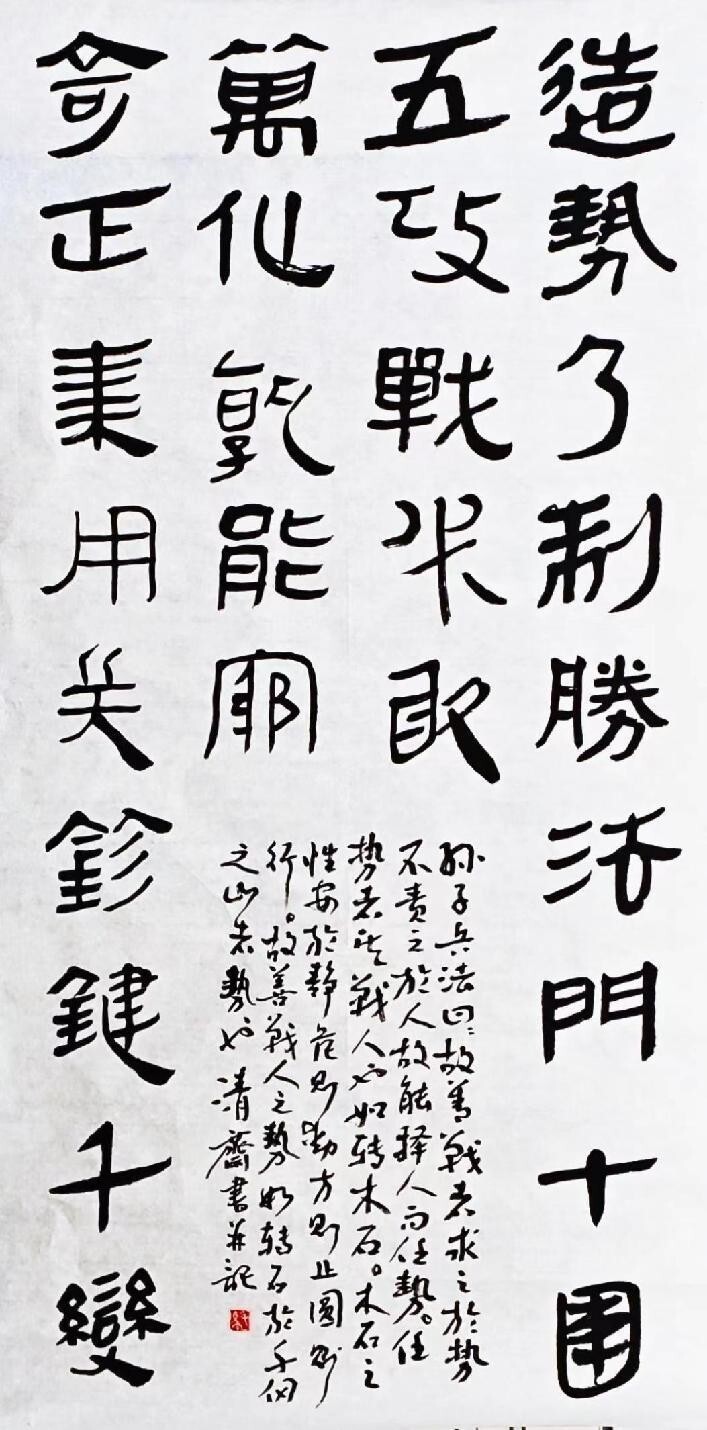 造勢乃制勝法門十圍
五攻戰取
奇正秉用关鈐鍵千變
萬化孰能窮
孙子兵法曰:故善戰者求之於勢
不责之於人故能择人而任勢。任
势者其戰人也如转木石。木石之
性安於静危则动方则止圆则
行。故善戰人之勢如转石於千仞
之山者勢也清齋書并記